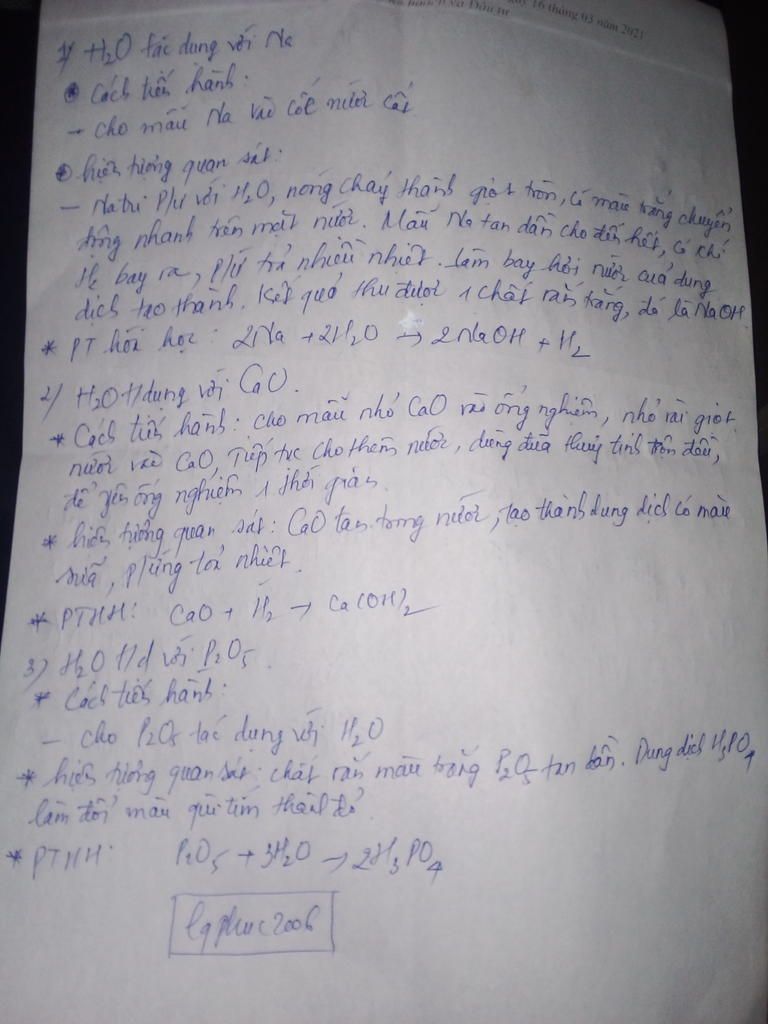 16 tháng 03 năm 2021
và Đầu tư
1) H₂O tác dụng với Na
* Cách tiến hành:
- cho mẫu Na vào cốc nước cất
* hiện tượng quan sát:
- Natri P/ư với H₂O, nóng chảy thành giọt tròn, có màu trắng chuyển
động nhanh trên mặt nước. Mẫu Na tan dần cho đến hết, có khí
H₂ bay ra, p/ứ toả nhiều nhiệt. làm bay hơi nước của dung
dịch tạo thành. Kết quả thu được 1 chất rắn trắng, đó là NaOH
* PT hóa học: 2Na + 2H₂O → 2NaOH + H₂
2) H₂O t/dụng với CaO.
* Cách tiến hành: cho mẫu nhỏ CaO vào ống nghiệm, nhỏ vài giọt
nước vào CaO, Tiếp tục cho thêm nước, dùng đũa thuỷ tinh trộn đều,
để yên ống nghiệm 1 thời gian.
* hiện tượng quan sát: CaO tan trong nước, tạo thành dung dịch có màu
sữa, p/ứng toả nhiệt.
* PTHH: CaO + H₂ → Ca(OH)₂
3) H₂O t/d với P₂O₅.
* Cách tiến hành:
- cho P₂O₅ tác dụng với H₂O
* hiện tượng quan sát: chất rắn màu trắng P₂O₅ tan dần. Dung dịch H₃PO₄
làm đổi màu quì tím thành đỏ.
* PTHH: P₂O₅ + 3H₂O → 2H₃PO₄
lqphuc2006